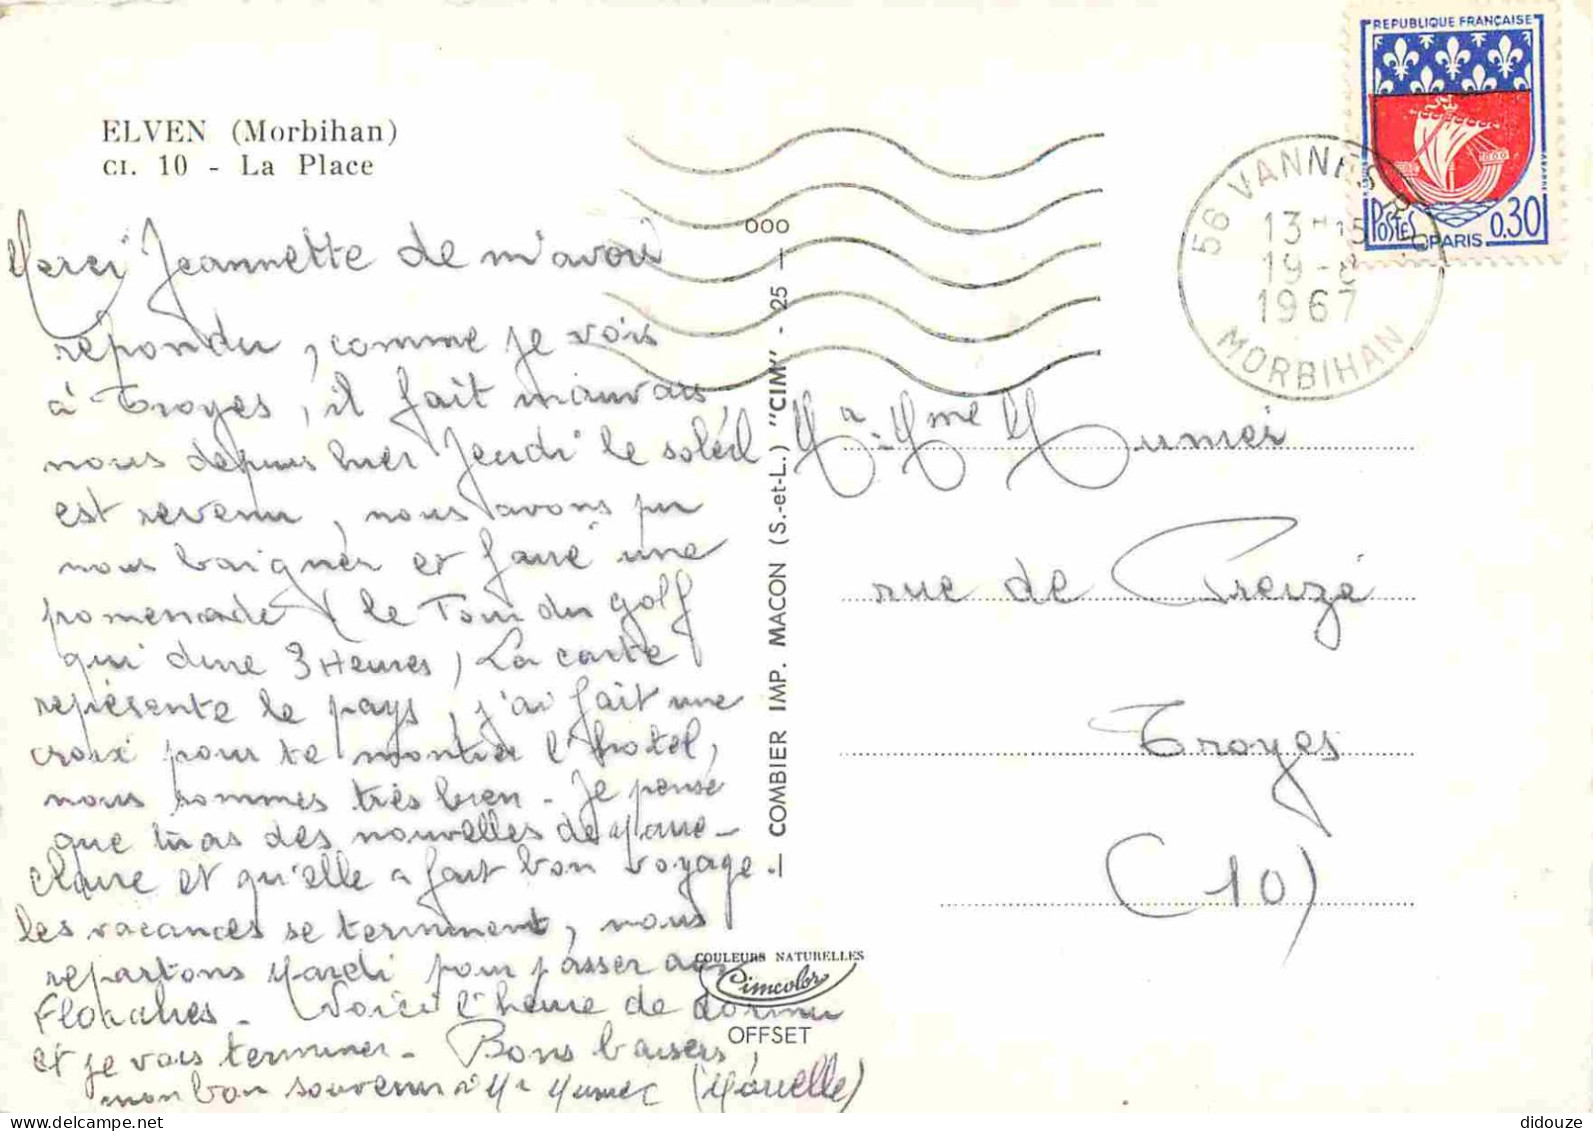 ELVEN (Morbihan)
CI. 10 - La Place
Merci Jeannette de m'avoir
répondu, comme je vois
à Troyes, il fait mauvais,
nous depuis hier Jeudi le soleil
est revenu, nous avons pu
nous baigner et faire une
promenade (le Tour du golf
qui dure 3 Heures) La carte
représente le pays, j'ai fait une
croix pour te montrer l'hotel,
nous sommes très bien - Je pense
que tu as des nouvelles de Marie-
Claire et qu'elle a fait bon voyage.
les vacances se terminent, nous
repartons Mardi pour passer aux
Floralies. Voici l'heure de dormir
et je vais terminer. Bons baisers,
mon bon souvenir à Mr (Marielle)
COMBIER IMP. MACON (S.-et-L.) "CIM" - 25 -
000
COULEURS NATURELLES
Cimcolor
OFFSET
REPUBLIQUE FRANÇAISE
POSTES
PARIS
0,30
56 VANNES R.P.
13H15
19-8
1967
MORBIHAN
Mr Mme
rue de Preize
Troyes
(10)
didouze